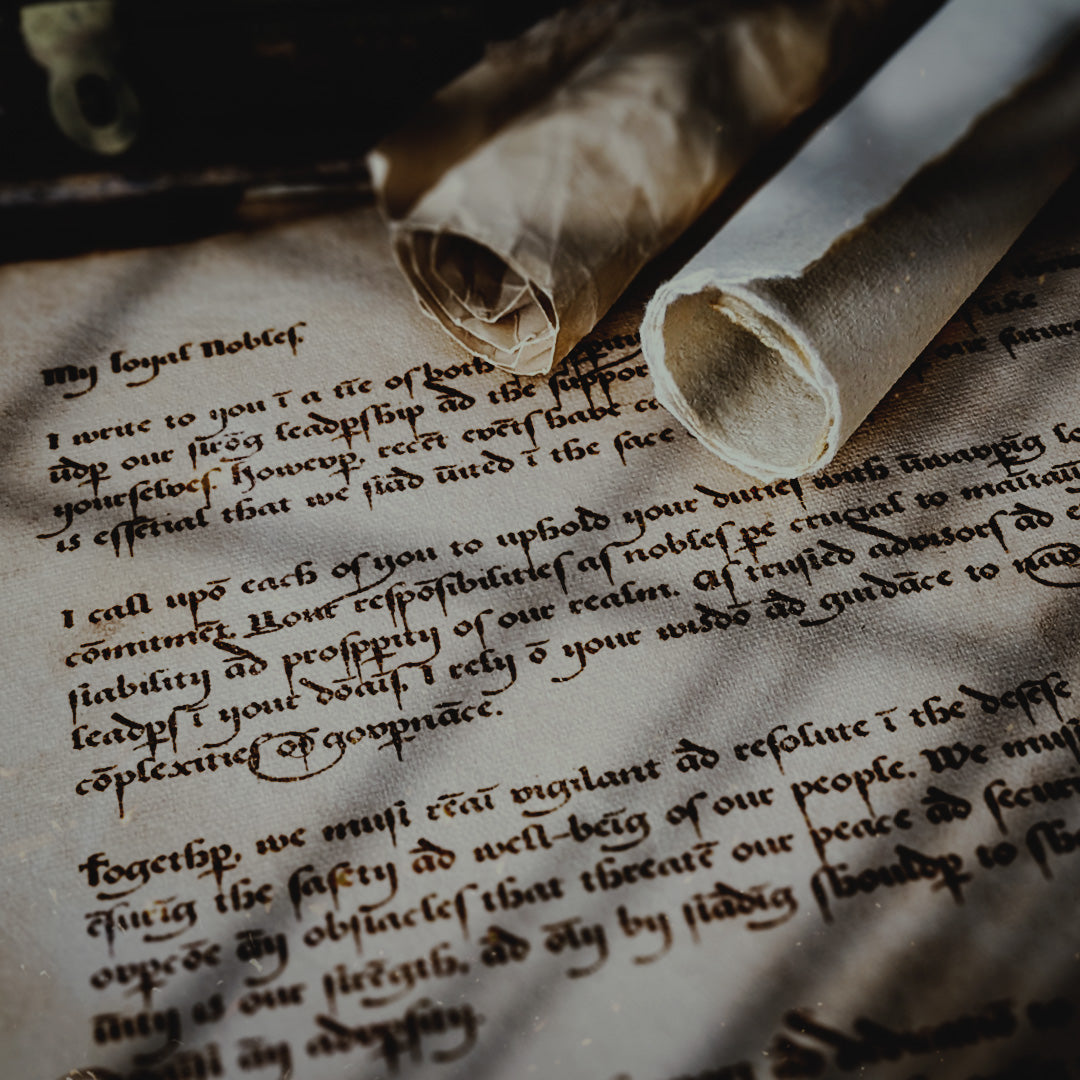 My loyal Nobleſ.
I write to you ī a tīe of both
ūdꝑ our ſtrōg leadꝑſhip ād the ſuppor
yourſelveſ. Howevꝑ, recēt evētſ have our future
is eſſētial that we ſtād ūited ī the face
I call upō each of you to uphold your dutieſ with ūwavꝑīg
cōmitmēt. Your reſpōſibilitieſ aſ nobleſ ꝑe crucial to maītaī
ſtability ād proſꝑity of our realm. Aſ truſted adviſorſ ād
leadꝑſ ī your dōaīſ, I rely ō your wiſdō ād guidāce to
cōplexitieſ of govꝑnāce.
Togethꝑ, we muſt rēaī vigilant ād reſolute ī the defēſe
ēſurīg the ſafety ād well-beīg of our people. We muſt
ovꝑcōe āy obſtacleſ that threatē our peace ād ſecuri
ūity is our ſtrēgth, ād ōly by ſtādīg ſhouldꝑ to
āy advꝑſity.